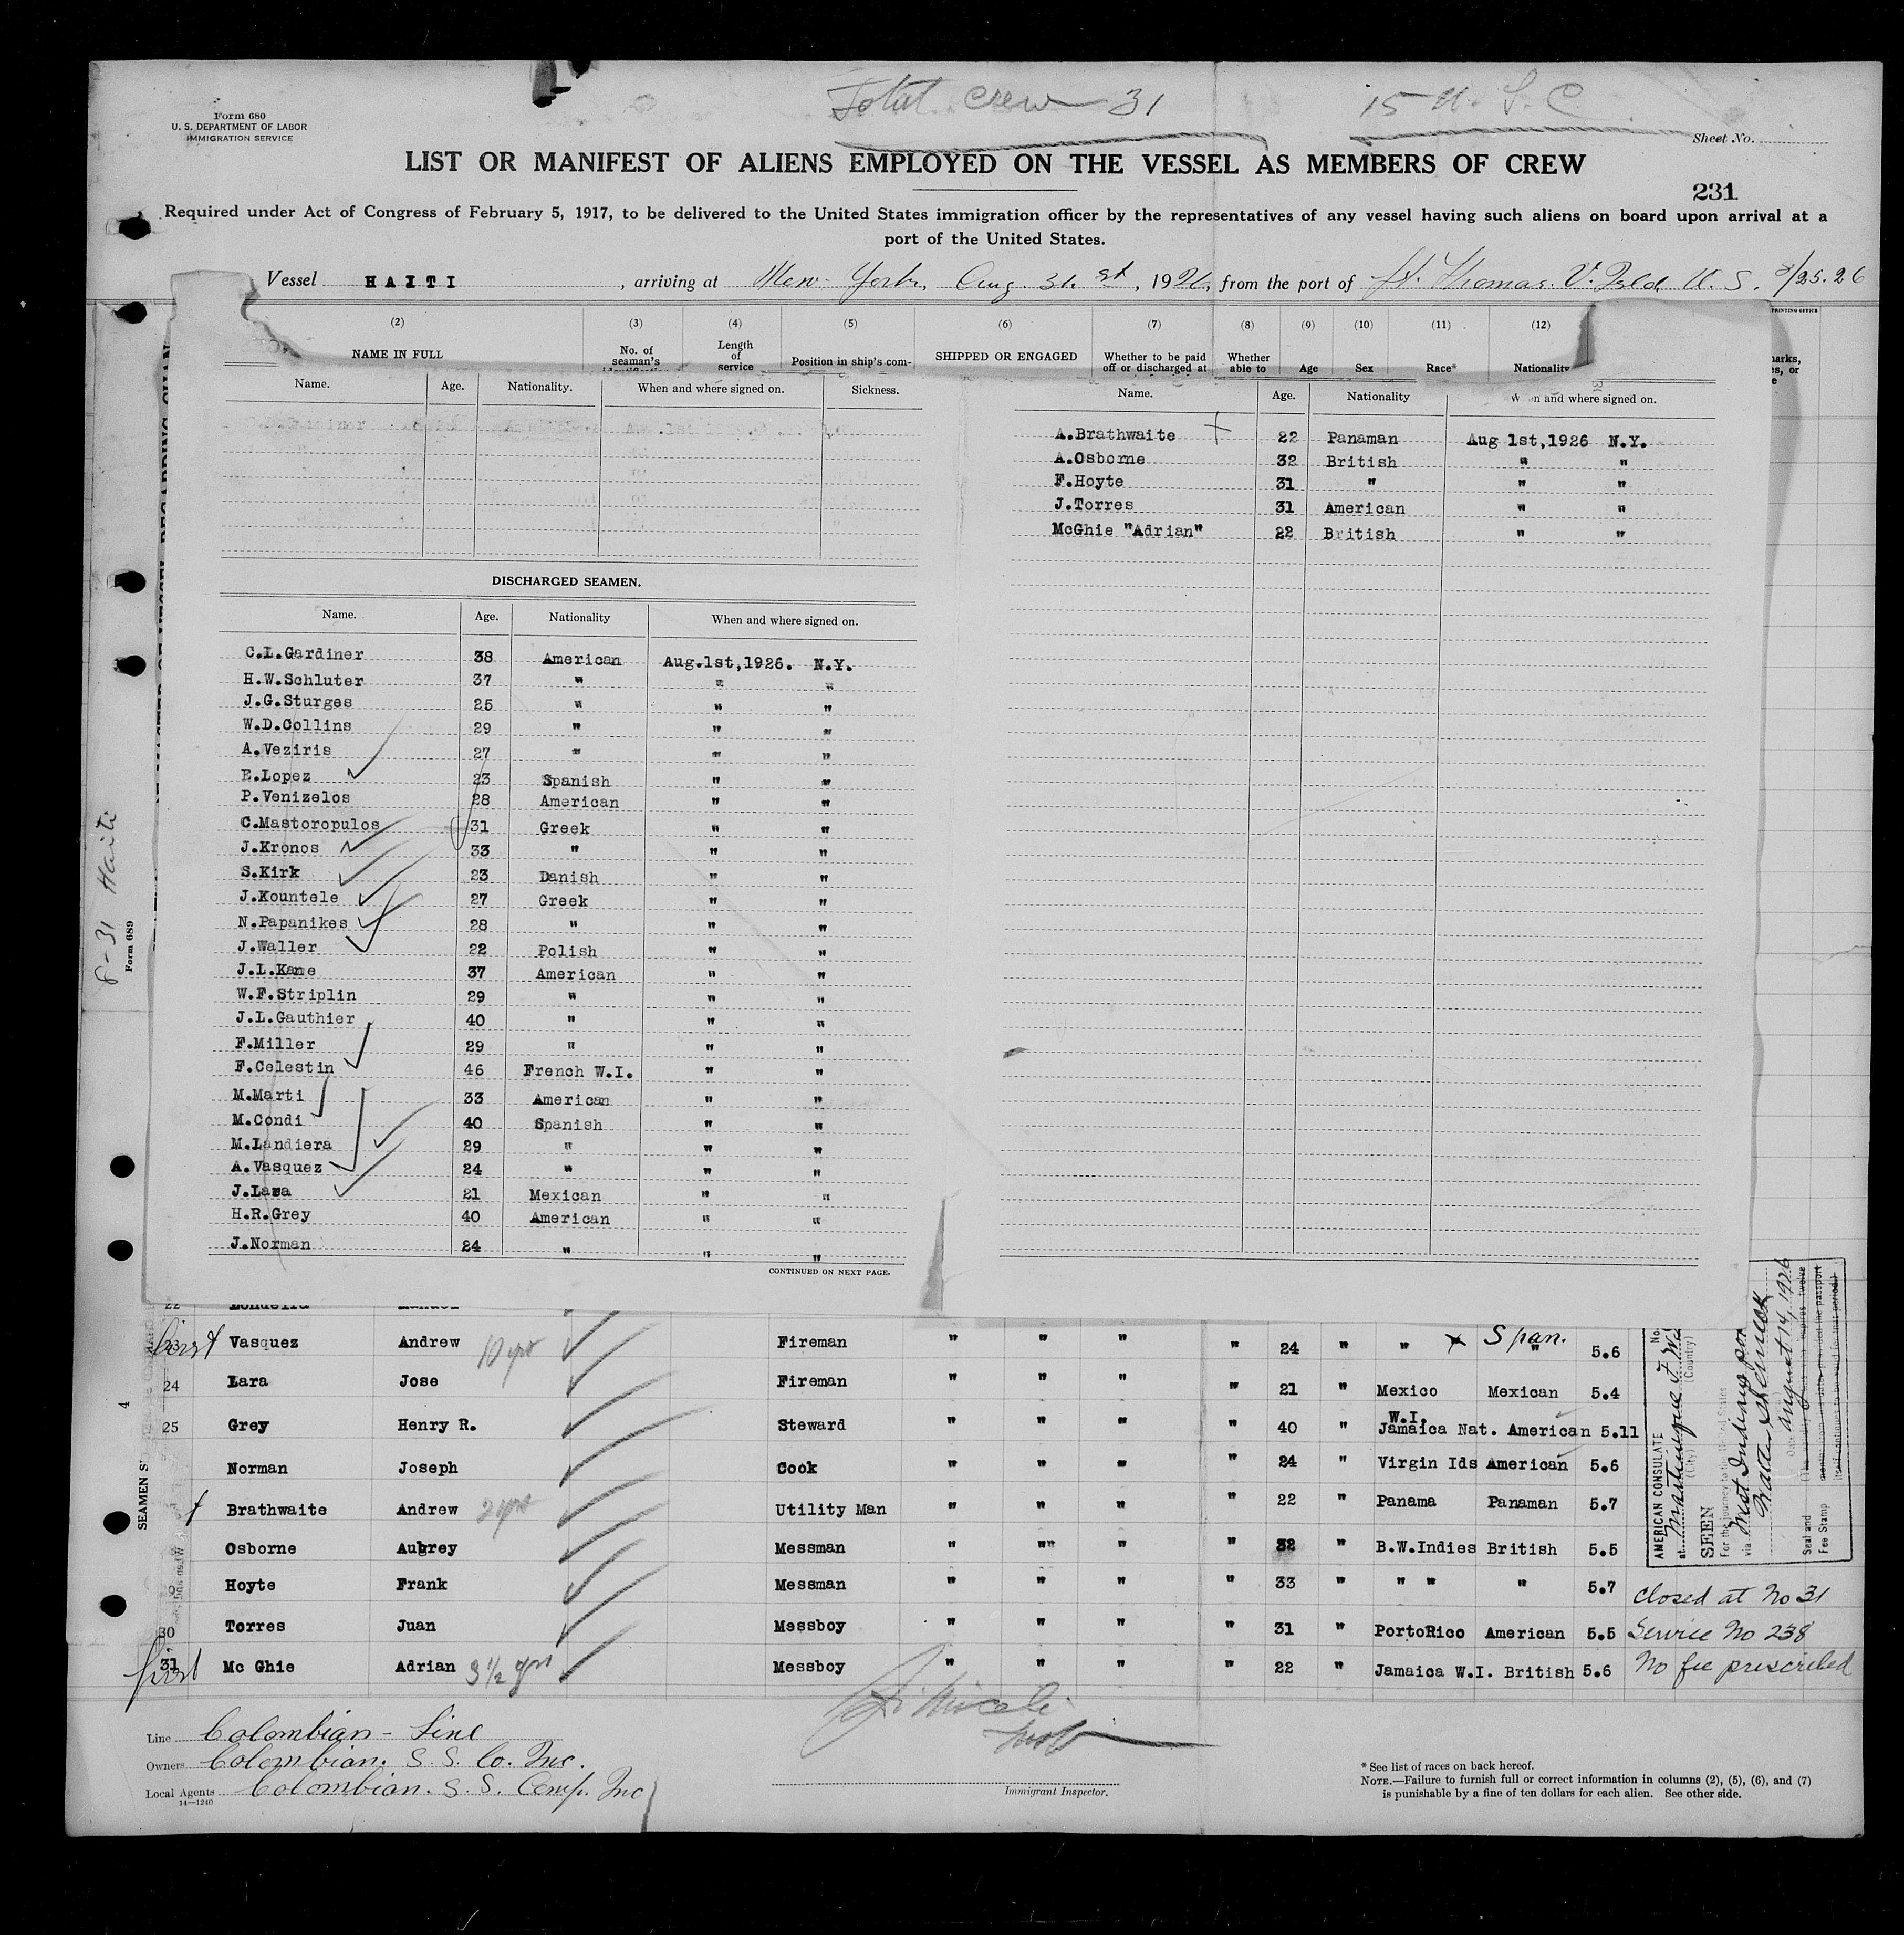 Total crew 31
15 U. S. C
Form 680
U. S. DEPARTMENT OF LABOR
IMMIGRATION SERVICE
Sheet No.
LIST OR MANIFEST OF ALIENS EMPLOYED ON THE VESSEL AS MEMBERS OF CREW
231
Required under Act of Congress of February 5, 1917, to be delivered to the United States immigration officer by the representatives of any vessel having such aliens on board upon arrival at a
port of the United States.
Vessel HAITI , arriving at New York, Aug. 31. st , 1926, from the port of St. Thomas. V. Isld. U. S. 8/25.26
(2) (3) (4) (5) (6) (7) (8) (9) (10) (11) (12)
NAME IN FULL No. of seaman's Length of service Position in ship's com- SHIPPED OR ENGAGED Whether to be paid off or discharged at Whether able to Age Sex Race* Nationality
Name. Age. Nationality. When and where signed on. Sickness.
DISCHARGED SEAMEN.
Name. Age. Nationality When and where signed on.
C.L.Gardiner 38 American Aug.1st,1926. N.Y.
H.W.Schluter 37 " " "
J.G.Sturges 25 " " "
W.D.Collins 29 " " "
A.Veziris 27 " " "
E.Lopez 23 Spanish " "
P.Venizelos 28 American " "
C.Mastoropulos 31 Greek " "
J.Kronos 33 " " "
S.Kirk 23 Danish " "
J.Kountele 27 Greek " "
N.Papanikes 28 " " "
J.Waller 22 Polish " "
J.L.Kane 37 American " "
W.F.Striplin 29 " " "
J.L.Gauthier 40 " " "
F.Miller 29 " " "
F.Celestin 46 French W.I. " "
M.Marti 33 American " "
M.Condi 40 Spanish " "
M.Landiera 29 " " "
A.Vasquez 24 " " "
J.Lara 21 Mexican " "
H.R.Grey 40 American " "
J.Norman 24 " " "
CONTINUED ON NEXT PAGE.
Name. Age. Nationality When and where signed on.
A.Brathwaite 22 Panaman Aug 1st,1926 N.Y.
A.Osborne 32 British " "
F.Hoyte 31 " " "
J.Torres 31 American " "
McGhie "Adrian" 22 British " "
8-31 Haiti
Form 689
4
SEAMEN
first Vasquez Andrew 10 yrs Fireman " " " " 24 " " x Span. " 5.6
24 Lara Jose Fireman " " " " 21 " Mexico Mexican 5.4
25 Grey Henry R. Steward " " " " 40 " W.I. Jamaica Nat. American 5.11
Norman Joseph Cook " " " " 24 " Virgin Ids American 5.6
Brathwaite Andrew 2 yrs Utility Man " " " " 22 " Panama Panaman 5.7
Osborne Aubrey Messman " " " " 32 " B.W.Indies British 5.5
Hoyte Frank Messman " " " " 33 " " " " 5.7
30 Torres Juan Messboy " " " " 31 " PortoRico American 5.5
first 31 Mc Ghie Adrian 3 1/2 yrs Messboy " " " " 22 " Jamaica W.I. British 5.6
AMERICAN CONSULATE
at Martinique F. W.
(City) (Country)
SEEN
For the journey to the United States
via West Indies por
August 14, 1926
Seal and
Fee Stamp
Closed at No 31
Service No 238
No fee prescribed
Line Colombian - Line
Owners Colombian. S. S. Co. Inc.
Local Agents Colombian. S. S. Comp. Inc
14—1240
Immigrant Inspector.
* See list of races on back hereof.
NOTE.—Failure to furnish full or correct information in columns (2), (5), (6), and (7)
is punishable by a fine of ten dollars for each alien. See other side.